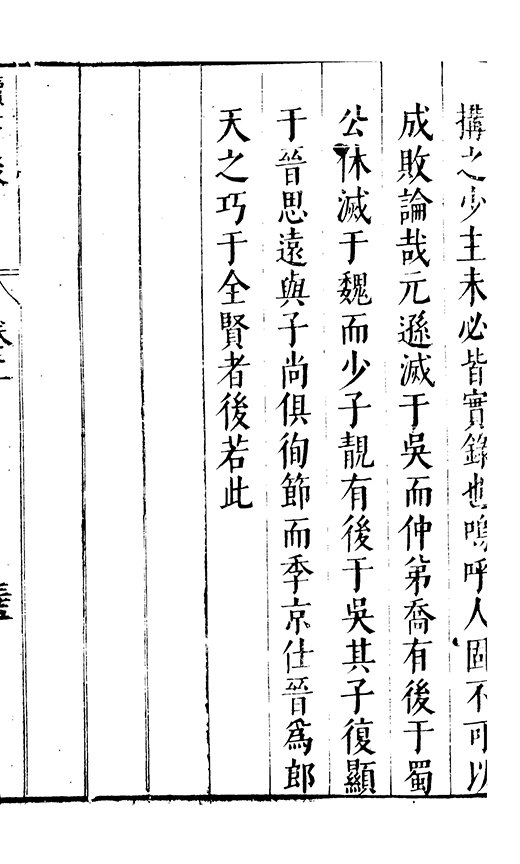 搆之少主未必皆實錄也嗚呼人固不可以
成敗論哉元遜滅于吳而仲弟喬有後于蜀
公休滅于魏而少子靚有後于吳其子復顯
于晉思遠與子尚俱徇節而季京仕晉為郎
天之巧于全賢者後若此